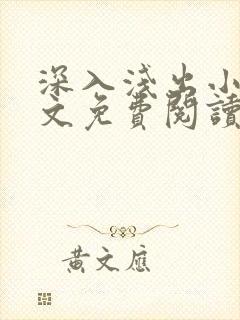 深入淺出小
文免費閱讀
黃文應